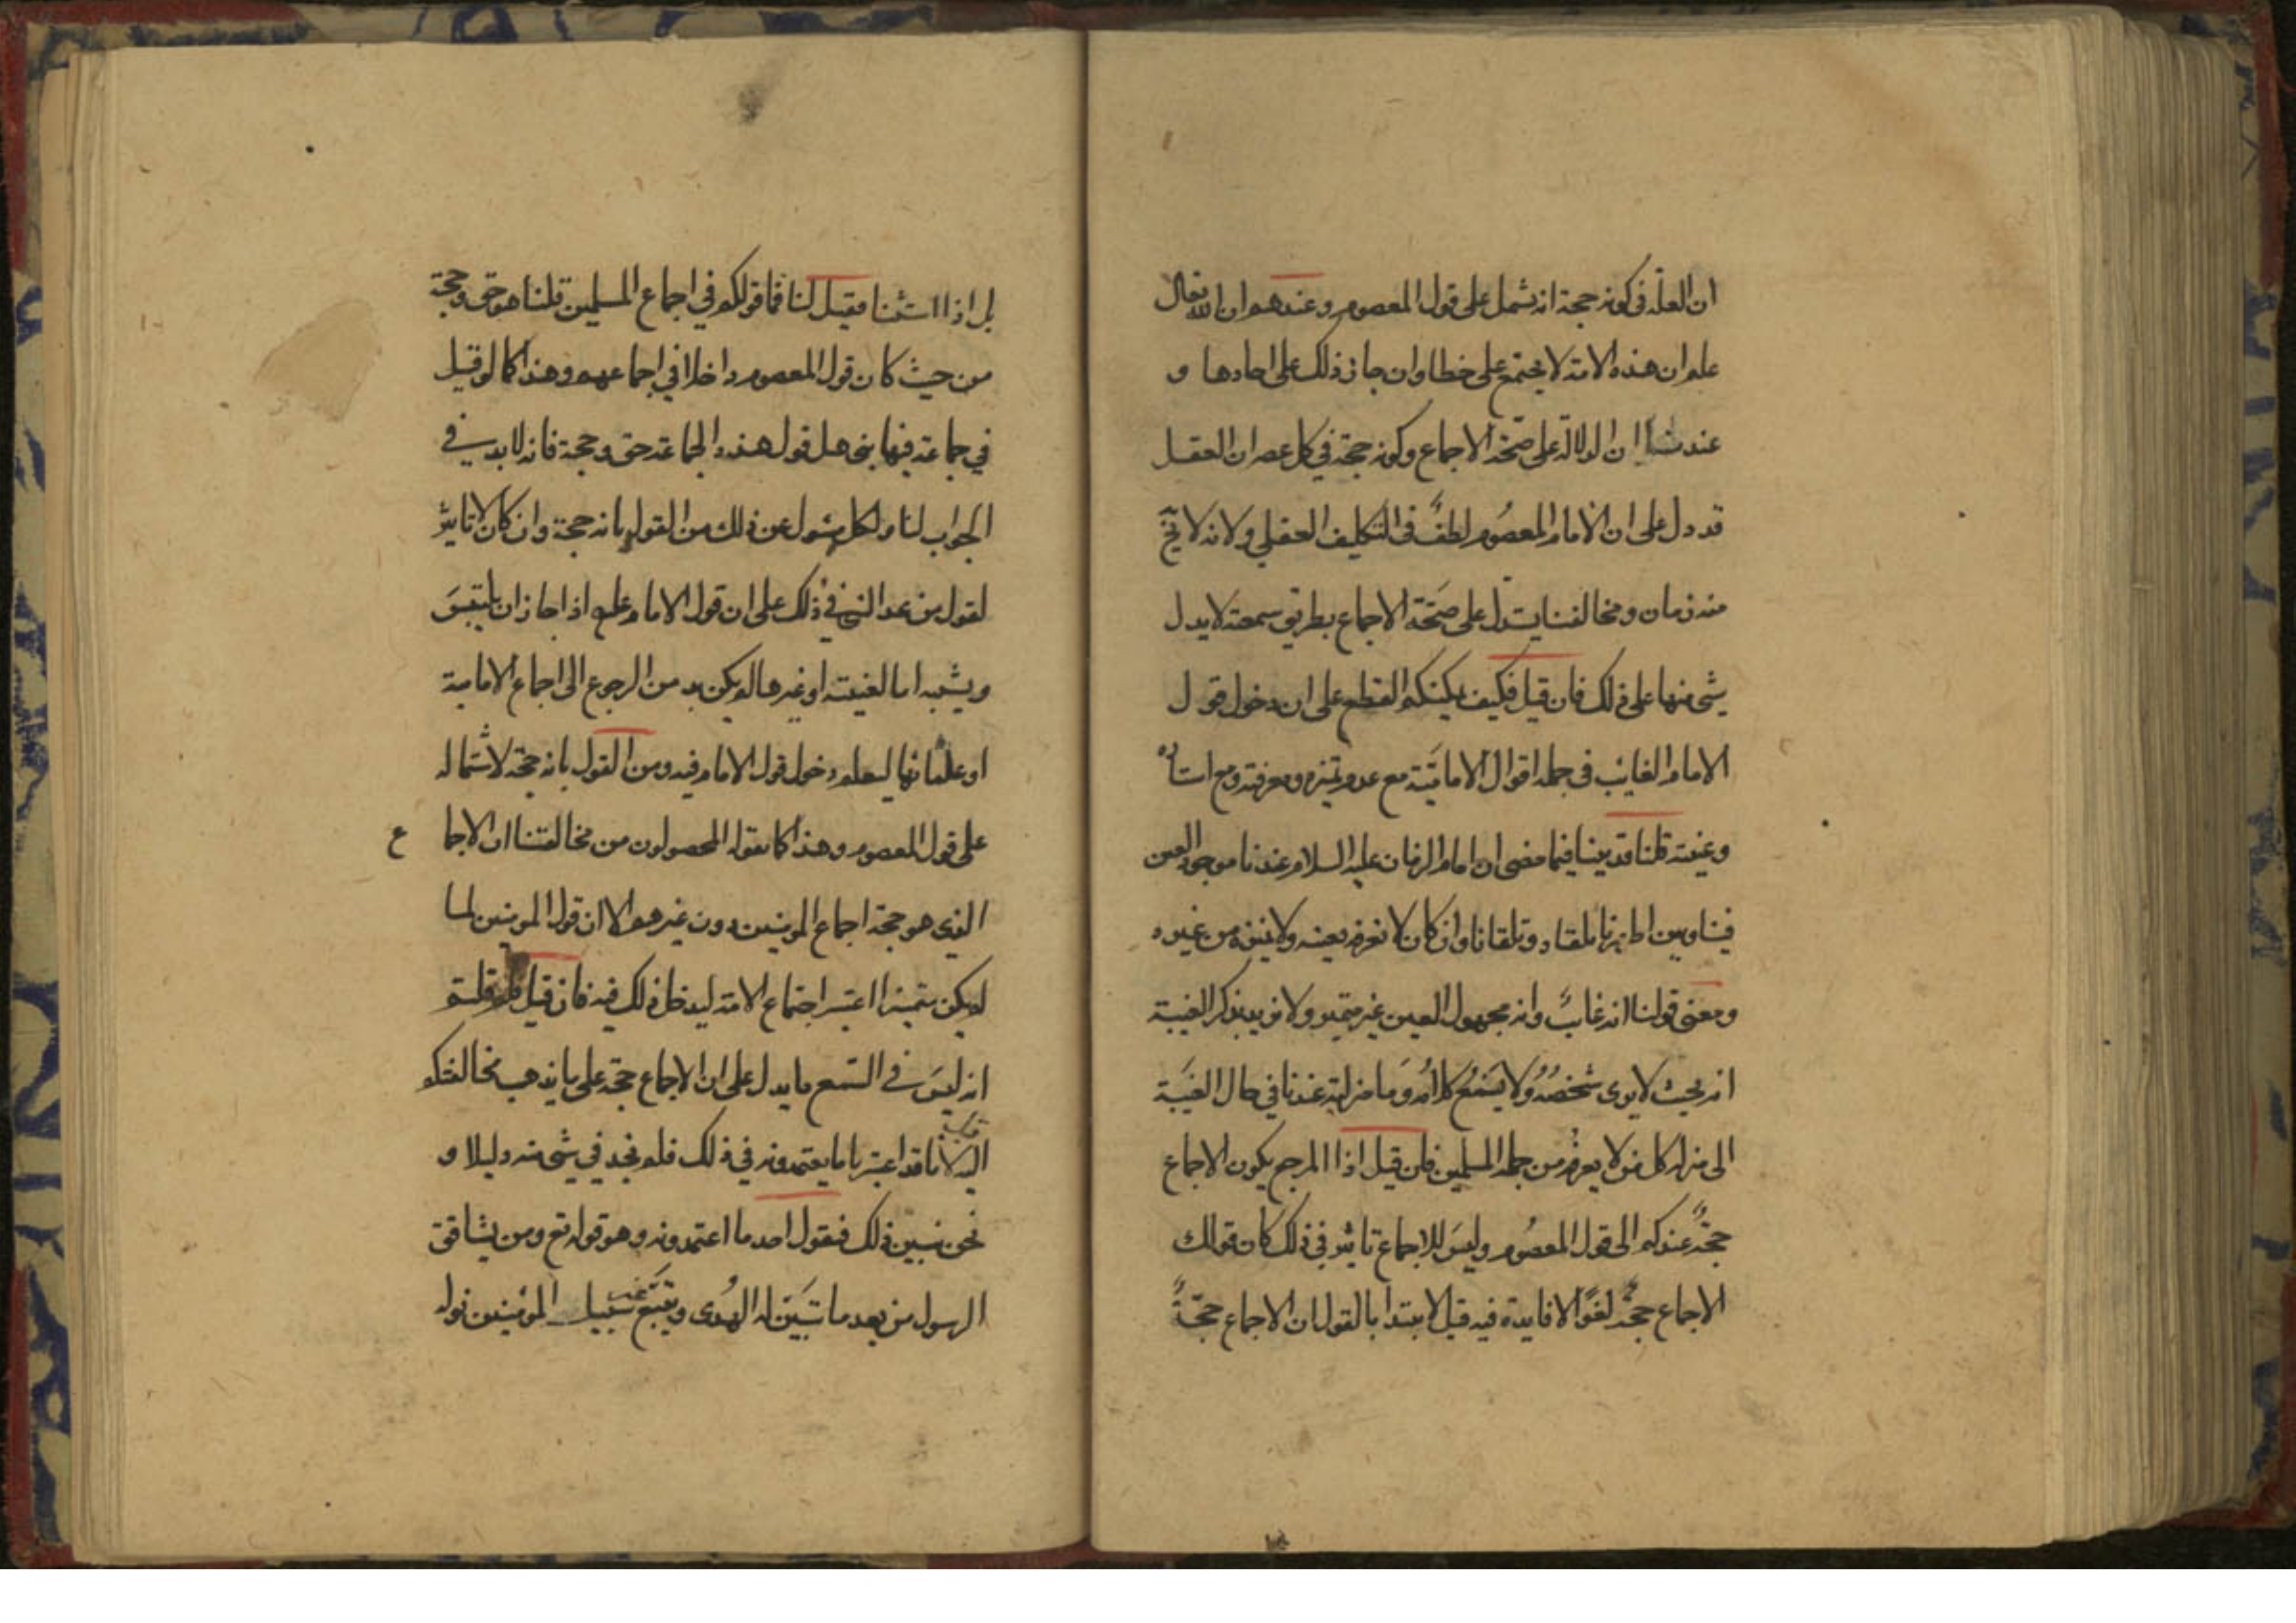 ان العلة في كونه حجة انه يشمل على قول المعصوم وعندهم ان الله تعالى
علم ان هذه الامة لا تجتمع على خطا وان جاز ذلك على احادها و
عندنا ان الدلالة على صحة الاجماع وكونه حجة في كل عصر ان العقل
قد دل على ان الامام المعصُوم لطفٌ في التكليف العقلي ولانه لا يخ
منه زمان ومخالفنا يستدل على صحّة الاجماع بطريق سمعية لا يدل
شئ منها على ذلك فان قيل فكيف يمكنكم القطع على ان دخول قول
الامام الغايب في جملة اقوال الاماميّة مع عدم تميزه ومعرفته ومع استتاره
وغيبته قلنا قد بينا فيما مضى ان امام الزمان عليه السلام عندنا موجود العين
فينا وبين اظهرنا نلقاه ويلقانا وان كان لا نعرفه بعينه ولا نميزه من غيره
ومعنى قولنا انه غايبٌ وانه مجهول العين غير متميز ولا نريد بذكر الغيبة
انه بحيث لا يرى شخصُهُ ولا يسَمَعُ كلامُه وَما منزلته عندنا في حال الغيَبة
الى منزلة كل من لا يعرفُ من جملة المسلمين فان قيل اذا المرجع بكون الاجماع
حجّةً عندكم الى قول المعصُوم وليسَ للاجماع تاثير في ذلك كان قولك
الاجماع حجّة لغوًا لا فايدة فيه قيل لا نبتدا بالقول ان الاجماع حجّةً
بل اذا استثنا فقيل لنا فما قولكم في اجماع المسلمين قلنا هو حق وحجة
من حيث كان قول المعصوم داخلا في اجماعهم وهذا كما لو قيل
في جماعة فيها نبى هل قول هذه الجماعة حق وحجة فانه لا بد في
الجواب لنا ولكل مسئول عن ذلك من القول بانه حجة وان كان لا تاثير
لقول من عدا النبي في ذلك على ان قول الامام علم اذا جاز ان يلتبسَ
ويشبه اما لغيبته او غيرها لم يكن بد من الرجوع الى اجماع الامامية
او علمائها ليعلم دخول قول الامام فيه ومن القول بانه حجة لاشتماله
على قول المعصوم وهذا كما يقوله المحصولون من مخالفتنا ان الاجماع
الذى هو حجة اجماع المومنين دون غيرهم الا ان قول المومنين لما
لم يكن متميزا اعتبر اجتماع الامة ليدخل ذلك فيه فان قيل فلم قلتم
انه ليسَ في السّمع ما يدل على ان الاجماع حجة على ما يذهب مخالفتكم
اليه لانا قد اعتبرنا ما يعتمدونه في ذلك فلم نجد في شئ منه دليلا و
نحن نبين ذلك فنقول احد ما اعتمدونه وهو قوله تع ومن يشاقق
الرسول من بعد ما تبيَّن له الهدى ويتَّبع غير سَبيل المومنين نوله